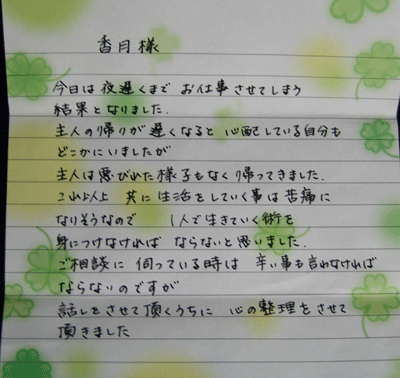 香月様
今日は夜遅くまで お仕事させてしまう
結果となりました.
主人の帰りが遅くなると 心配している自分も
どこかにいましたが
主人は悪びれた様子もなく帰ってきました.
これ以上 共に生活をしていく事は苦痛に
なりそうなので 1人で生きていく術を
身につけなければ ならないと思いました.
ご相談に 伺っている時は 辛い事も言わなければ
ならないのですが
話しをさせて頂くうちに 心の整理をさせて
頂きました